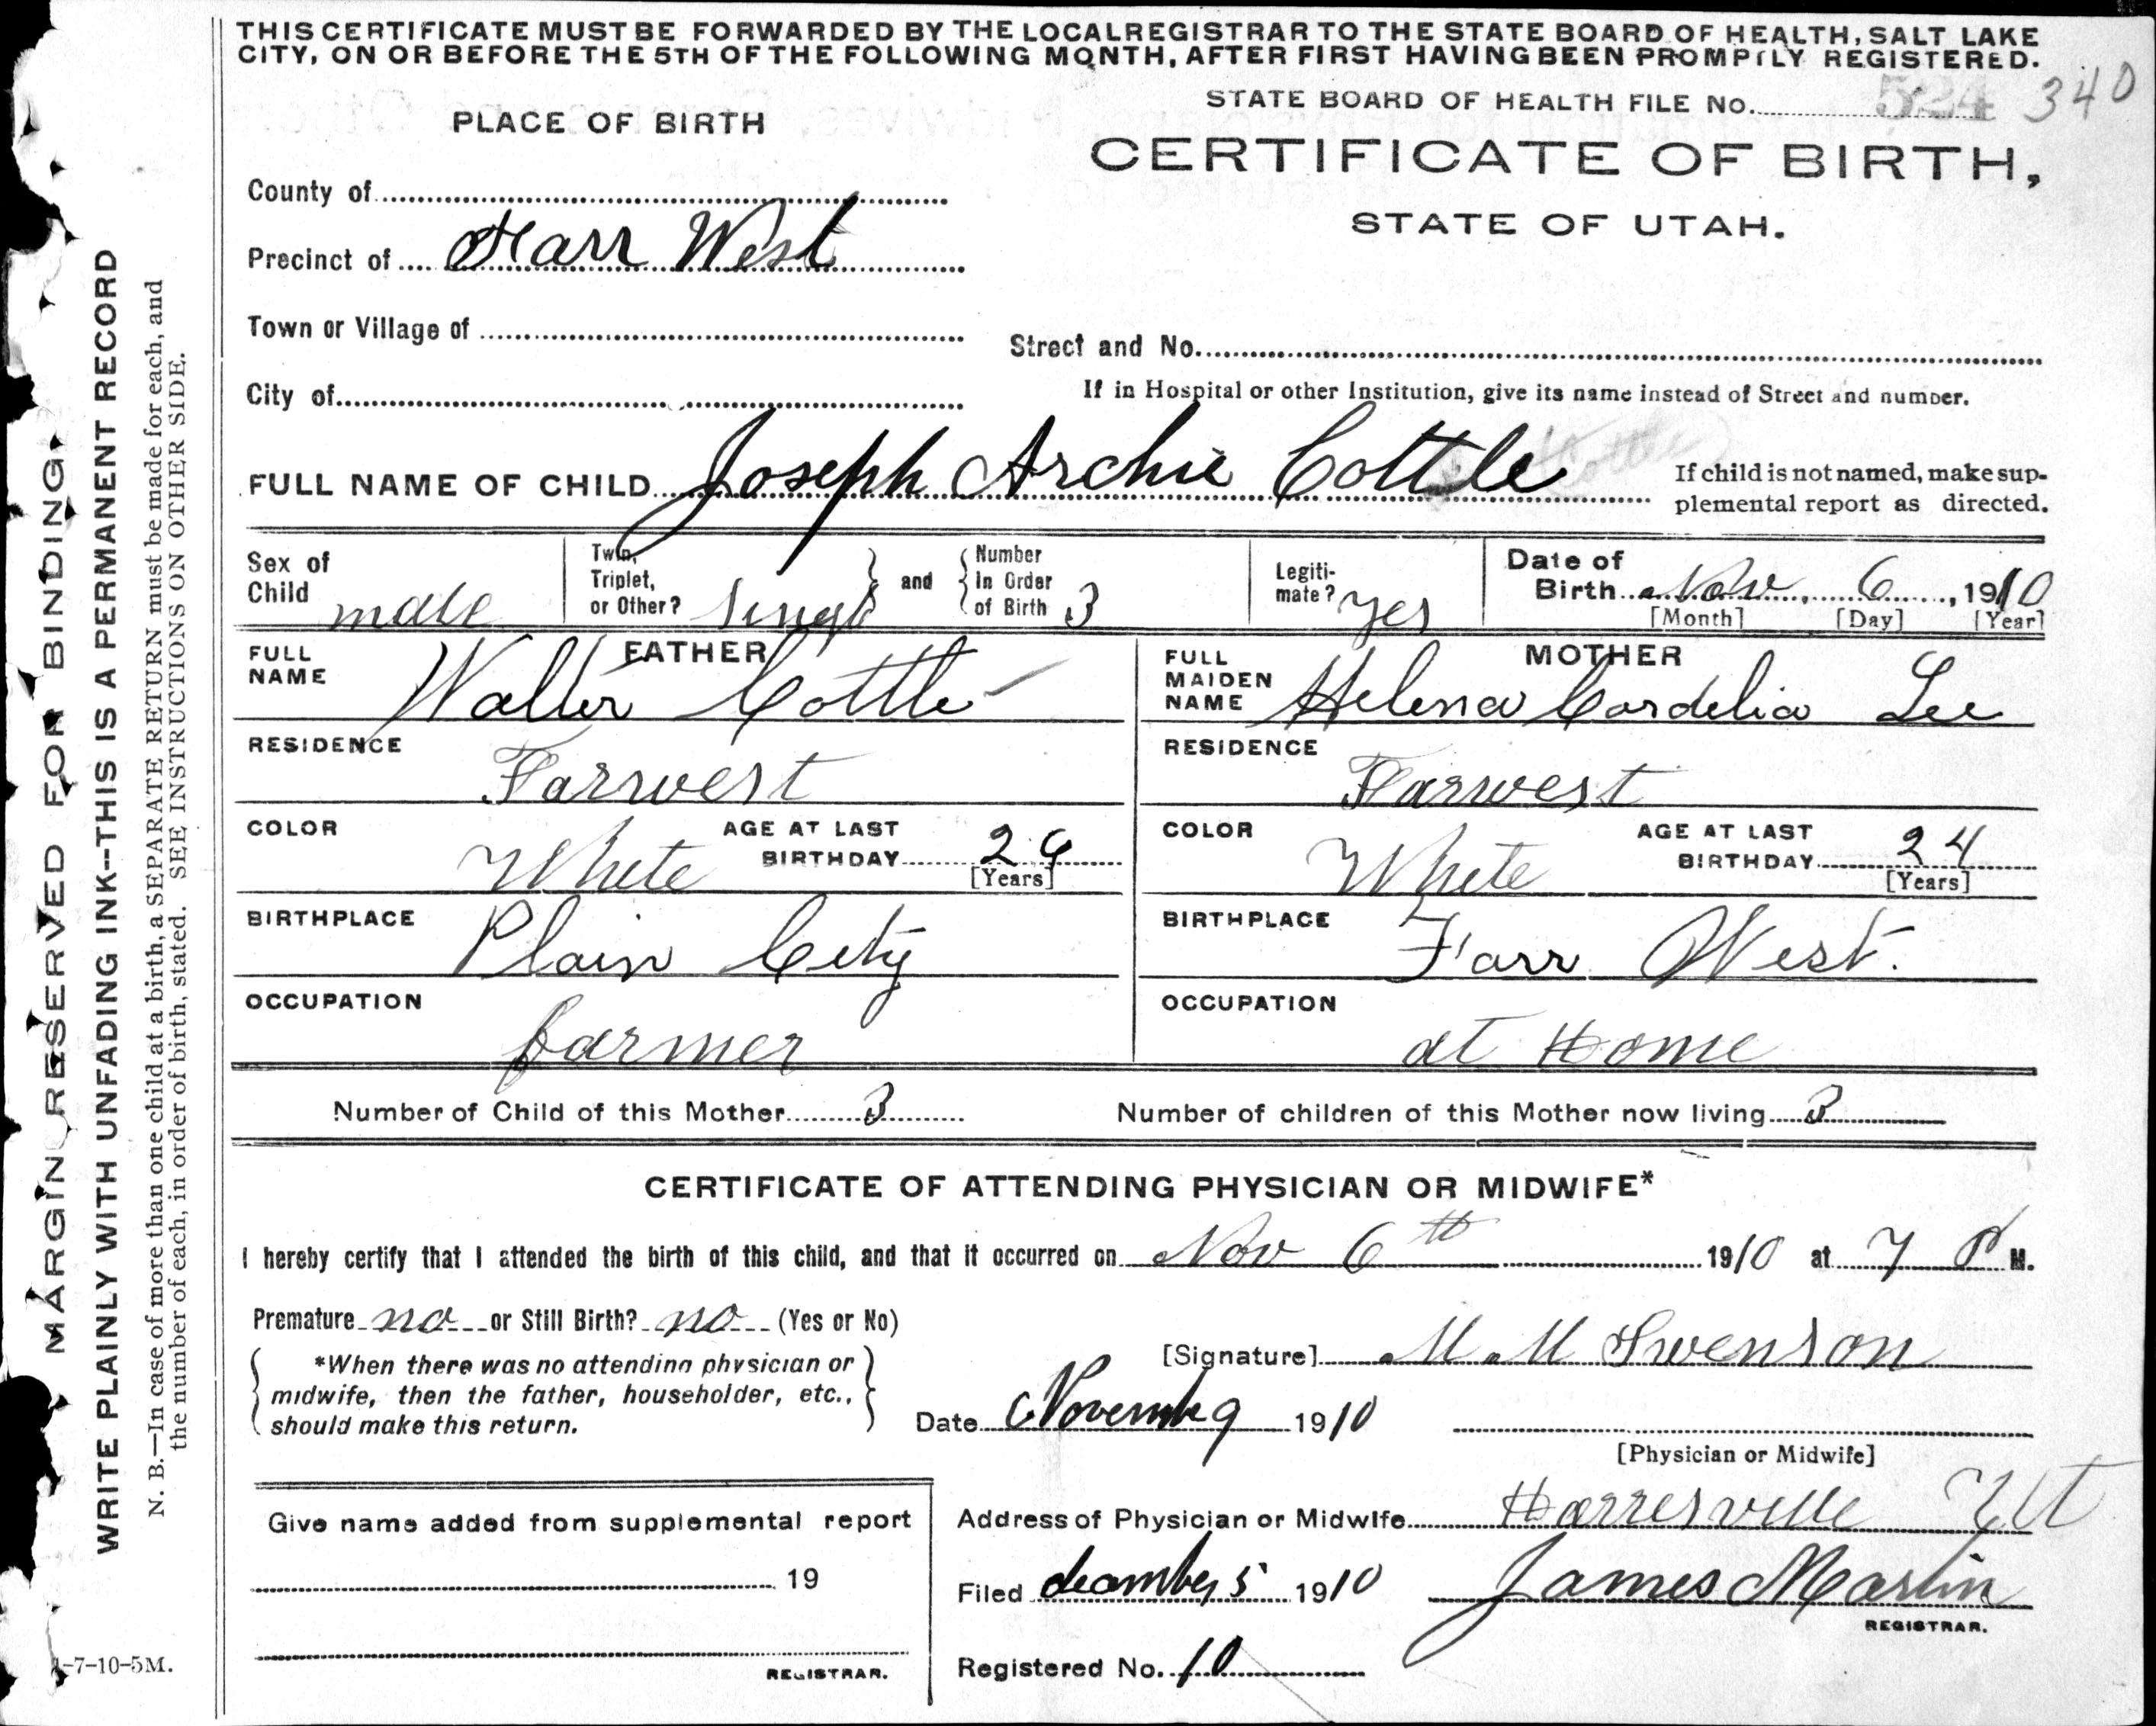 THIS CERTIFICATE MUST BE FORWARDED BY THE LOCAL REGISTRAR TO THE STATE BOARD OF HEALTH, SALT LAKE
CITY, ON OR BEFORE THE 5TH OF THE FOLLOWING MONTH, AFTER FIRST HAVING BEEN PROMPTLY REGISTERED.
STATE BOARD OF HEALTH FILE No. 524 340
PLACE OF BIRTH
CERTIFICATE OF BIRTH,
STATE OF UTAH.
County of
Precinct of Farr West
Town or Village of
Street and No.
City of
If in Hospital or other Institution, give its name instead of Street and number.
FULL NAME OF CHILD Joseph Archie Cottle
If child is not named, make sup-
plemental report as directed.
Sex of Child male
Twin, Triplet, or Other? Single and Number In Order of Birth 3
Legiti-mate? yes
Date of Birth Nov, 6, 1910
[Month] [Day] [Year]
FATHER
FULL NAME Walter Cottle
MOTHER
FULL MAIDEN NAME Helena Cordelia Lee
RESIDENCE Farwest
RESIDENCE Farwest
COLOR White AGE AT LAST BIRTHDAY 29 [Years]
COLOR White AGE AT LAST BIRTHDAY 24 [Years]
BIRTHPLACE Plain City
BIRTHPLACE Farr West.
OCCUPATION farmer
OCCUPATION at Home
Number of Child of this Mother 3 Number of children of this Mother now living 3
CERTIFICATE OF ATTENDING PHYSICIAN OR MIDWIFE*
I hereby certify that I attended the birth of this child, and that it occurred on Nov 6th 1910 at 7 P M.
Premature no or Still Birth? no (Yes or No)
*When there was no attending physician or
midwife, then the father, householder, etc.,
should make this return.
[Signature] M. M Swenson
Date November 9 1910
[Physician or Midwife]
Give name added from supplemental report
19
REGISTRAR.
Address of Physician or Midwife Harresville Ut
Filed december 5 1910 James Martin
REGISTRAR.
Registered No. 10
MARGIN RESERVED FOR BINDING.
WRITE PLAINLY WITH UNFADING INK--THIS IS A PERMANENT RECORD
N. B.—In case of more than one child at a birth, a SEPARATE RETURN must be made for each, and
the number of each, in order of birth, stated. SEE INSTRUCTIONS ON OTHER SIDE.
-7-10-5M.